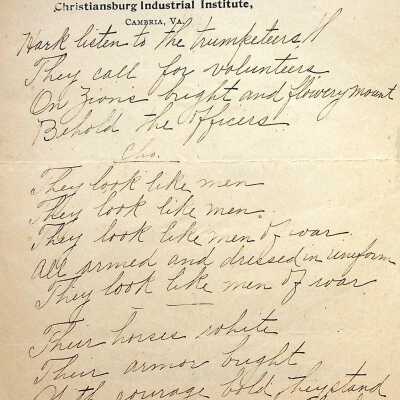 Christiansburg Industrial Institute,
CAMBRIA, VA.
Hark listen to the trumketeers
They call for volunteers
On Zion's bright and flowery mount
Behold the officers
Cho.
They look like men
They look like men.
They look like men of war.
All armed and dressed in uniform
They look like men of war.
Their horses white
Their armor bright
With courage bold they stand